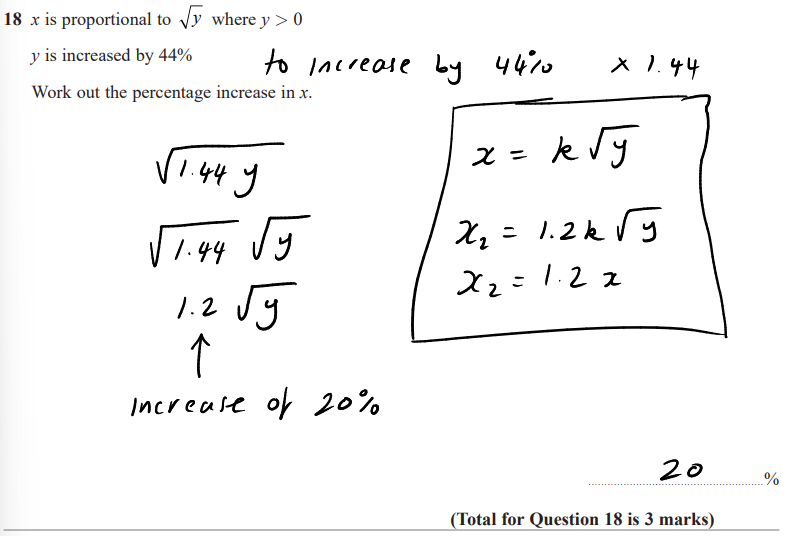 18 x is proportional to √y where y > 0
y is increased by 44%
to increase by 44% × 1.44
Work out the percentage increase in x.
√1.44 y
√1.44 √y
1.2 √y
↑
Increase of 20%
x = k √y
x₂ = 1.2 k √y
x₂ = 1.2 x
20 %
(Total for Question 18 is 3 marks)